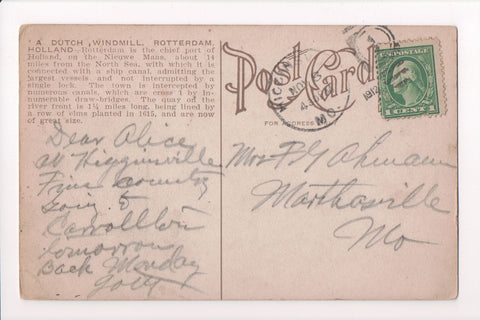 A DUTCH WINDMILL, ROTTERDAM,
HOLLAND.—Rotterdam is the chief port of
Holland, on the Nieuwe Maas, about 14
miles from the North Sea, with which it is
connected with a ship canal, admitting the
largest vessels and not interrupted by a
single lock. The town is intercepted by
numerous canals, which are cross'd by in-
numerable draw-bridges. The quay on the
river front is 1¼ miles long, being lined by
a row of elms planted in 1615, and are now
of great size.
Post Card
FOR ADDRESS
NOV
4
MO.
1912
1 CENT 1
Dear Alice
at Higginsville
Fine country
going to
Carrollton
tomorrow
Back Monday
Mrs. Ahmann
Marthasville
Mo